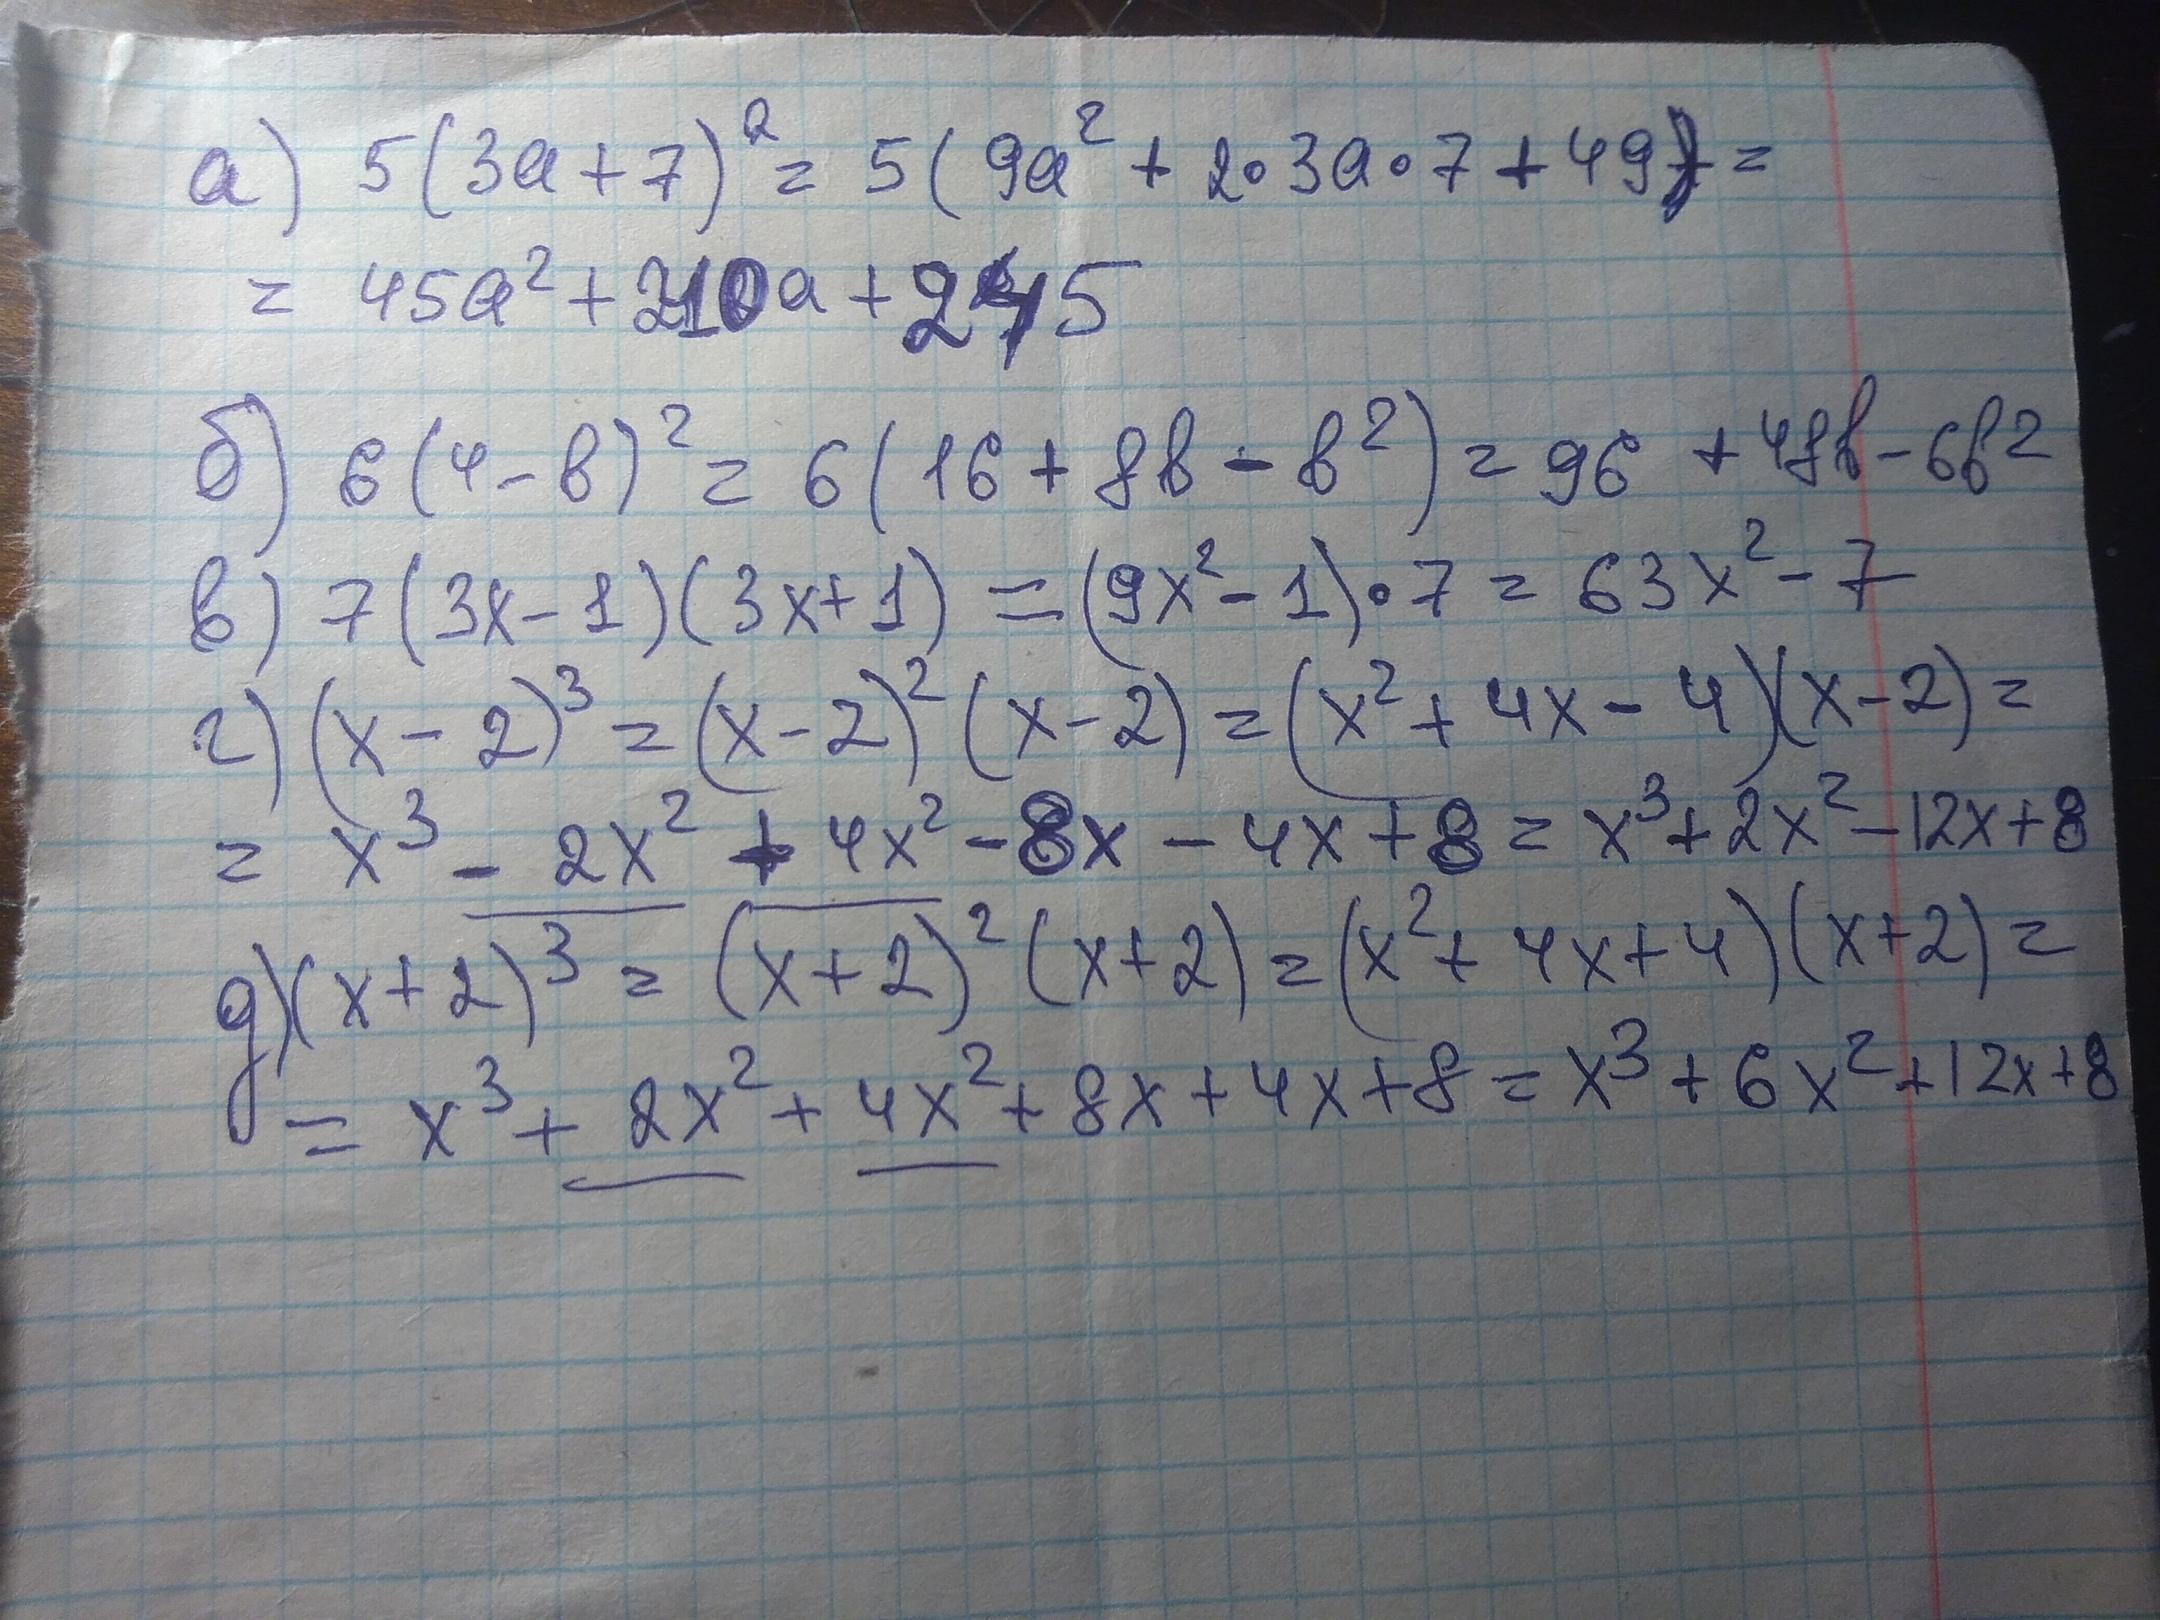 а) 5(3a+7)² = 5(9a² + 2•3a•7 + 49) =
= 45a² + 210a + 245
б) 6(4-b)² = 6(16 + 8b - b²) = 96 + 48b - 6b²
в) 7(3x-1)(3x+1) = (9x²-1)•7 = 63x² - 7
г) (x-2)³ = (x-2)²(x-2) = (x² + 4x - 4)(x-2) =
= x³ - 2x² + 4x² - 8x - 4x + 8 = x³ + 2x² - 12x + 8
д) (x+2)³ = (x+2)²(x+2) = (x² + 4x + 4)(x+2) =
= x³ + 2x² + 4x² + 8x + 4x + 8 = x³ + 6x² + 12x + 8